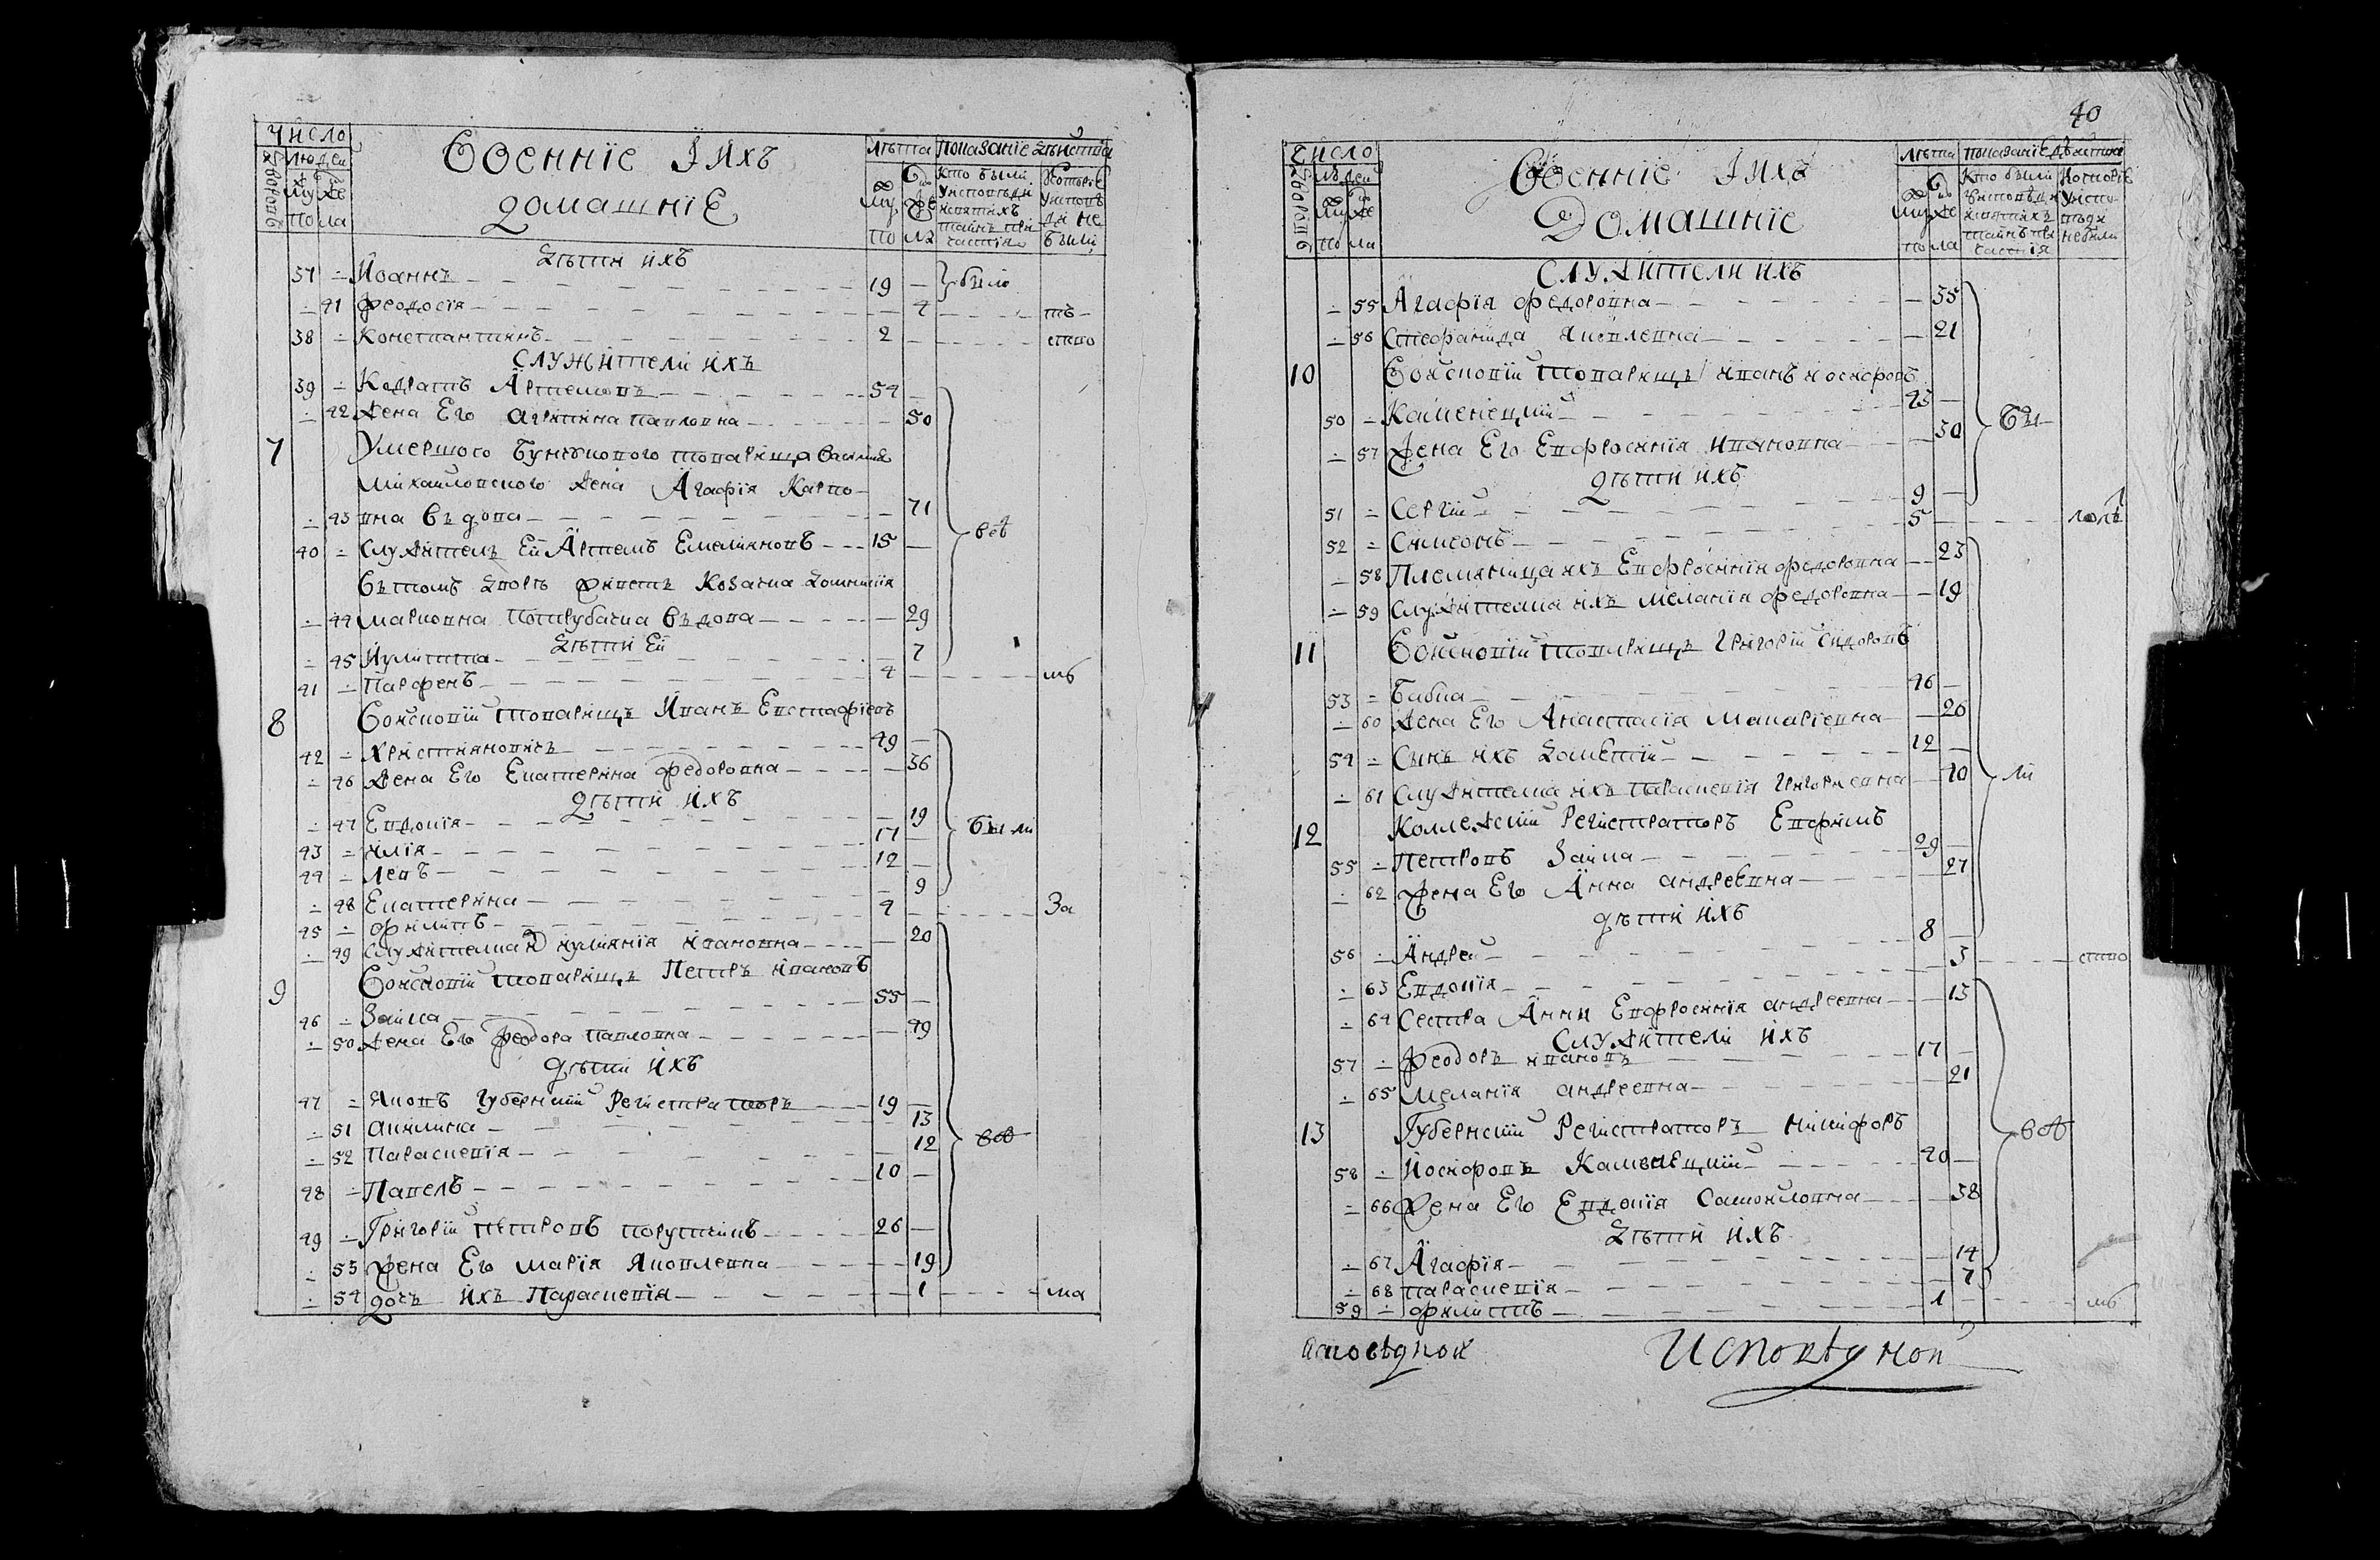 Число
Людей
дворовъ
Муже
по ла
Военніе І Ихъ
домашніе
Лѣта
Муже
по ла
Показаніе дѣйства
Кто были
Уисповѣди
исвятихъ
тайнъ при
частія
Которіе
Уиспов
ди не
были
Дѣти ихъ
37 Иоаннъ 19 было
41 Феодосія 4 тѣ
38 Константинъ 2 ство
Служители ихъ
39 Кодратъ Артемовъ 54
42 Жена Его Агрипина Павловна 50
7 Умершого Бунчукового товарища Василия
Михайловского Жена Агафія Карпо
43 вна Въдова 71 всѣ
40 Служитель Ей Артемъ Емелияновъ 15
Въ томъ Дворѣ Живетъ Козачка Домникія
44 Марковна Потрубачка Въдова 29
Дѣти Ей
45 Иулитта 7
41 Парфенъ 4 мъ
8 Войсковій товарищъ Иванъ Евстафіевъ
42 Християновичъ 49
46 Жена Его Екатерина Федоровна 36
Дѣти ихъ
47 Евдокія 19 Были
43 Илія 17
44 Левъ 12
48 Екатерина 9
45 Филипъ 4 За
49 Служителка Иулиянія Ивановна 20
9 Войсковій товарищъ Петръ Ивановъ
46 Заика 55
50 Жена Его Феодора Павловна 49
Дѣти ихъ
47 Яковъ Губернскій Регистраторъ 19
51 Акилина 13
52 Параскевія 12 всѣ
48 Павелъ 10
49 Григорій Петровъ Порутчикъ 26
53 Жена Его Марія Яковлевна 19
54 Дочъ ихъ Параскевія 1 ма
40
Число
Людей
дворовъ
Муже
по ла
Военніе І Ихъ
Домашніе
Лѣта
Муже
по ла
Показаніе Дѣйства
Кто были
Уисповѣди
исвятихъ
тайнъ при
частія
Которіе
Уиспо
вѣди
небыли
Служители ихъ
55 Агафія Федоровна 35
56 Стефанида Яковлевна 21
10 Войсковій товарищъ Иванъ Иосифовъ
50 Каменецкій 43 Бы
57 Жена Его Евфросинія Ивановна 30
Дѣти ихъ
51 Сергій 9
52 Симеонъ 5
58 Племянница ихъ Евфросинія Федоровна 23
59 Служителка ихъ Меланія Федоровна 19
11 Войсковій товарищъ Григорій Сидоровъ
53 Бабка 46
60 Жена Его Анастасія Макаріевна 20
54 Сынъ ихъ Дометій 12
61 Служителка ихъ Параскевія Григориевна 40 ли
12 Коллежскій Регистраторъ Евфимъ
55 Петровъ Заика 29
62 Жена Его Анна Андреевна 27
Дѣти ихъ
56 Андрей 8
63 Евдокія 3 ство
64 Сестра Анни Евфросинія Андреевна 13
Служители ихъ
57 Феодоръ Ивановъ 17
65 Меланія Андреевна 21
13 Губернскій Регистраторъ Никифоръ
58 Иосифовъ Каменецкій 40 всѣ
66 Жена Его Евдокія Самойловна 38
Дѣти ихъ
67 Агафія 14
68 Параскевія 7
59 Филиппъ 1 мъ
Исповѣдной
Исповѣдной